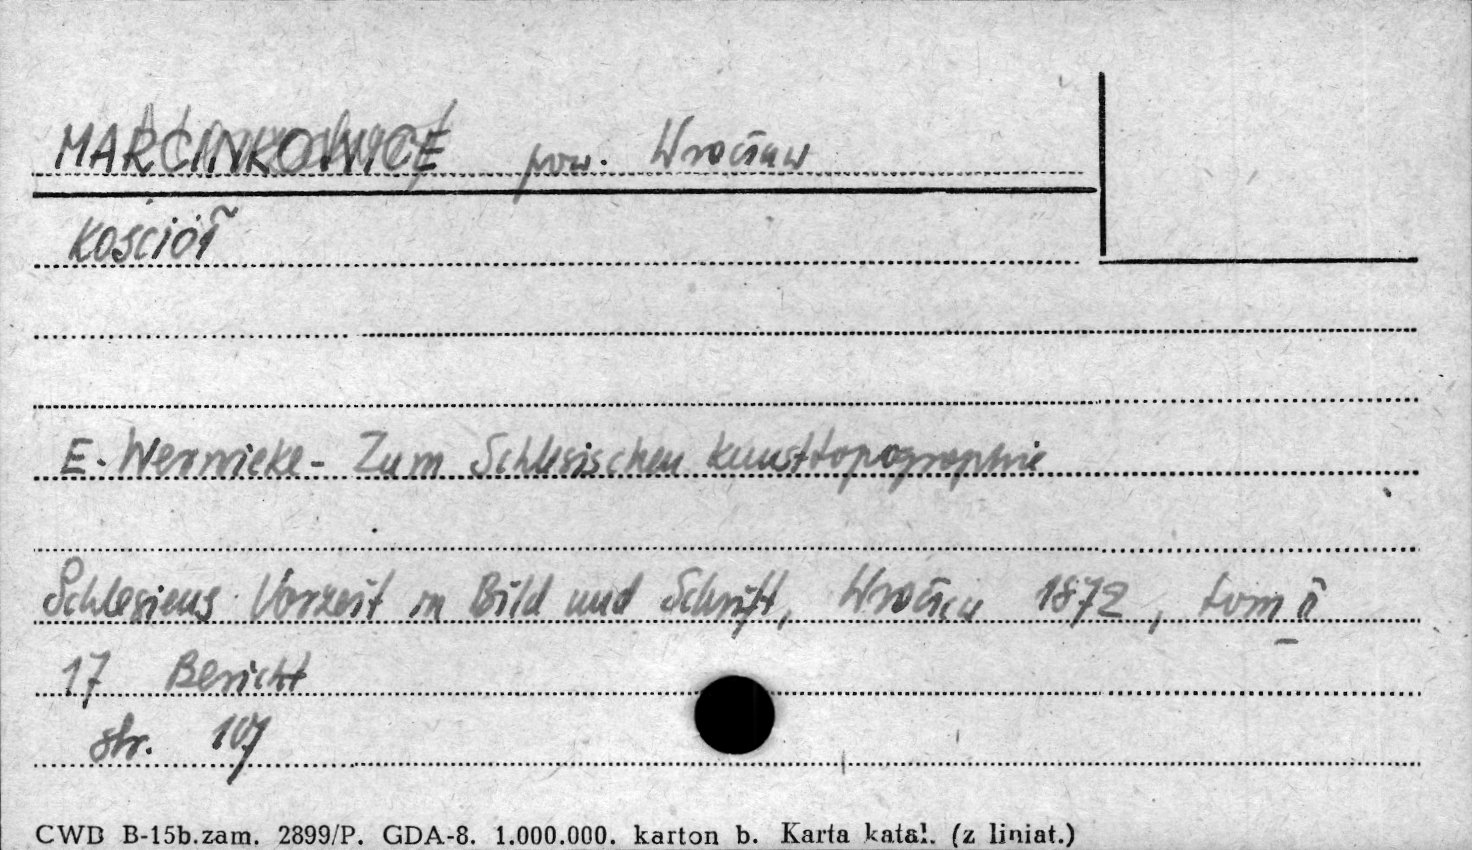 MARCINKOWICE pow. Wrocław
Kościół
E. Wernicke - Zum Schlesischen Kunsttopographie
Schlesiens Vorzeit in Bild und Schrift, Wrocław 1872, tom II
17 Bericht
str. 107
CWD B-15b.zam. 2899/P. GDA-8. 1.000.000. karton b. Karta katal. (z liniat.)